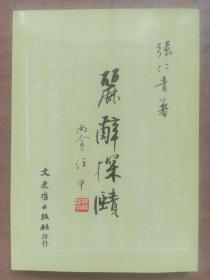 張仁青著
麗辭探賾
雨盦汪中
文史哲出版社印行